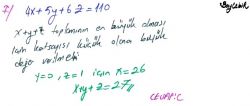 Soybilik
7/ 4x+5y+6z=110
x+y+z toplamının en büyük olması
için katsayısı küçük olana büyük
değer verilmeli
y=0, z=1 için x=26
x+y+z=27//
CEVAP: C